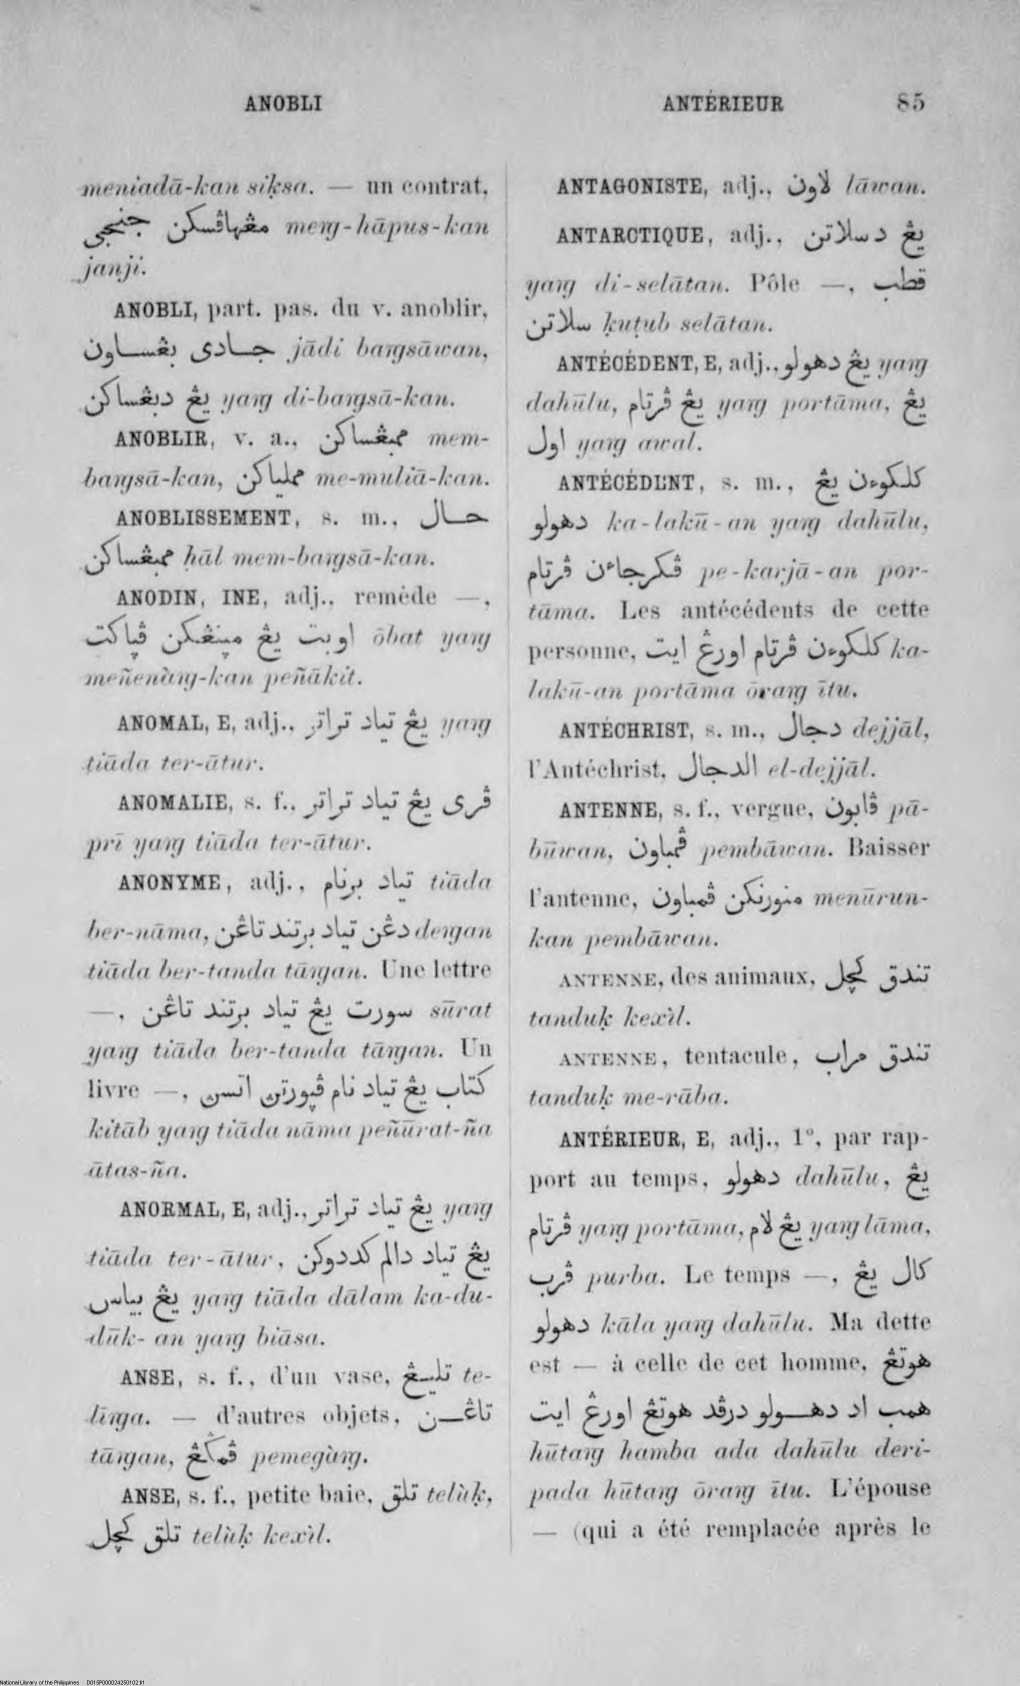 ANOBLI
ANTÉRIEUR 85
meniadā-kan siḳsa. — un contrat,
مڠهاڤسکن جنجي meŋ-hāpus-kan
janji.
ANOBLI, part. pas. du v. anoblir,
جادی بڠساون jādi baŋsāwan,
يڠ دبڠساکن yaŋ di-baŋsā-kan.
ANOBLIR, v. a., ممبڠساکن mem-
baŋsā-kan, مملياکن me-muliā-kan.
ANOBLISSEMENT, s. m., حال
ممبڠساکن ḥāl mem-baŋsā-kan.
ANODIN, INE, adj., remède —,
اوبت يڠ مينڠکن ڤياکت ōbat yaŋ
meñenàŋ-kan peñākit.
ANOMAL, E, adj., يڠ تياد تراتر yaŋ
tiāda ter-ātur.
ANOMALIE, s. f., ڤری يڠ تياد تراتر
prī yaŋ tiāda ter-ātur.
ANONYME, adj., تياد برنام tiāda
ber-nāma, دڠن تياد برتند تاڠن deŋan
tiāda ber-tanda tāŋan. Une lettre
—, سورت يڠ تياد برتند تاڠن sūrat
yaŋ tiāda ber-tanda tāŋan. Un
livre —, کتاب يڠ تياد نام ڤيورتن اتسن
kitāb yaŋ tiāda nāma peñūrat-ña
ātas-ña.
ANORMAL, E, adj., يڠ تياد تراتر yaŋ
tiāda ter-ātur, يڠ تياد دالم کددوکن
يڠ بياس yaŋ tiāda dālam ka-du-
dūk-an yaŋ biāsa.
ANSE, s. f., d'un vase, تليڠ te-
līŋa. — d'autres objets, تاڠن
tāŋan, ڤمݢڠ pemegàŋ.
ANSE, s. f., petite baie, تلق telùḳ,
تلق کچل telùḳ kexìl.
ANTAGONISTE, adj., لاون lāwan.
ANTARCTIQUE, adj., يڠ دسلاتن
yaŋ di-selātan. Pôle —, قطب
سلاتن ḳuṭub selātan.
ANTÉCÉDENT, E, adj., يڠ دهولو yaŋ
dahūlu, يڠ ڤرتام yaŋ portāma, يڠ
اول yaŋ awal.
ANTÉCÉDENT, s. m., کلکوءن يڠ
دهولو ka-lakū-an yaŋ dahūlu,
ڤکرجاءن ڤرتام pe-karjā-an por-
tāma. Les antécédents de cette
personne, کلکوءن ڤرتام اورڠ ايت ka-
lakū-an portāma ōraŋ ītu.
ANTÉCHRIST, s. m., دجال dejjāl,
l'Antéchrist, الدجال el-dejjāl.
ANTENNE, s. f., vergue, ڤابون pā-
būwan, ڤمباون pembāwan. Baisser
l'antenne, منورنکن ڤمباون menūrun-
kan pembāwan.
ANTENNE, des animaux, تندق کچل
tanduḳ kexìl.
ANTENNE, tentacule, تندق مراب
tanduḳ me-rāba.
ANTÉRIEUR, E, adj., 1°, par rap-
port au temps, دهولو dahūlu, يڠ
ڤرتام yaŋ portāma, يڠ لام yaŋ lāma,
ڤرب purba. Le temps —, کال يڠ
دهولو kāla yaŋ dahūlu. Ma dette
est — à celle de cet homme, هوتڠ
همب اد دهولو درڤد هوتڠ اورڠ ايت
hūtaŋ hamba ada dahūlu deri-
pada hūtaŋ ōraŋ ītu. L'épouse
— (qui a été remplacée après le
National Library of the Philippines